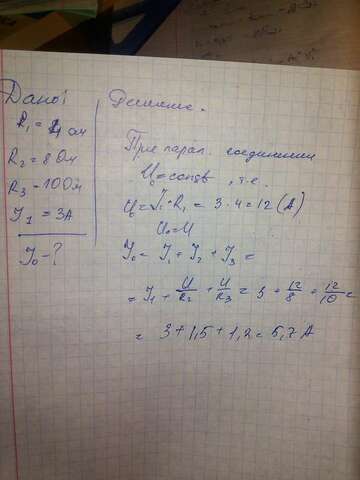 Дано:
R₁ = 4 Ом
R₂ = 8 Ом
R₃ - 10 Ом
I₁ = 3А
I₀ - ?
Решение.
При парал. соединении
U₀ = const, т.е.
U₀ = I₁·R₁ = 3·4 = 12 (А)
U₀ = U
I₀ = I₁ + I₂ + I₃ =
= I₁ + U/R₂ + U/R₃ = 3 + 12/8 + 12/10 =
= 3 + 1,5 + 1,2 = 5,7 А